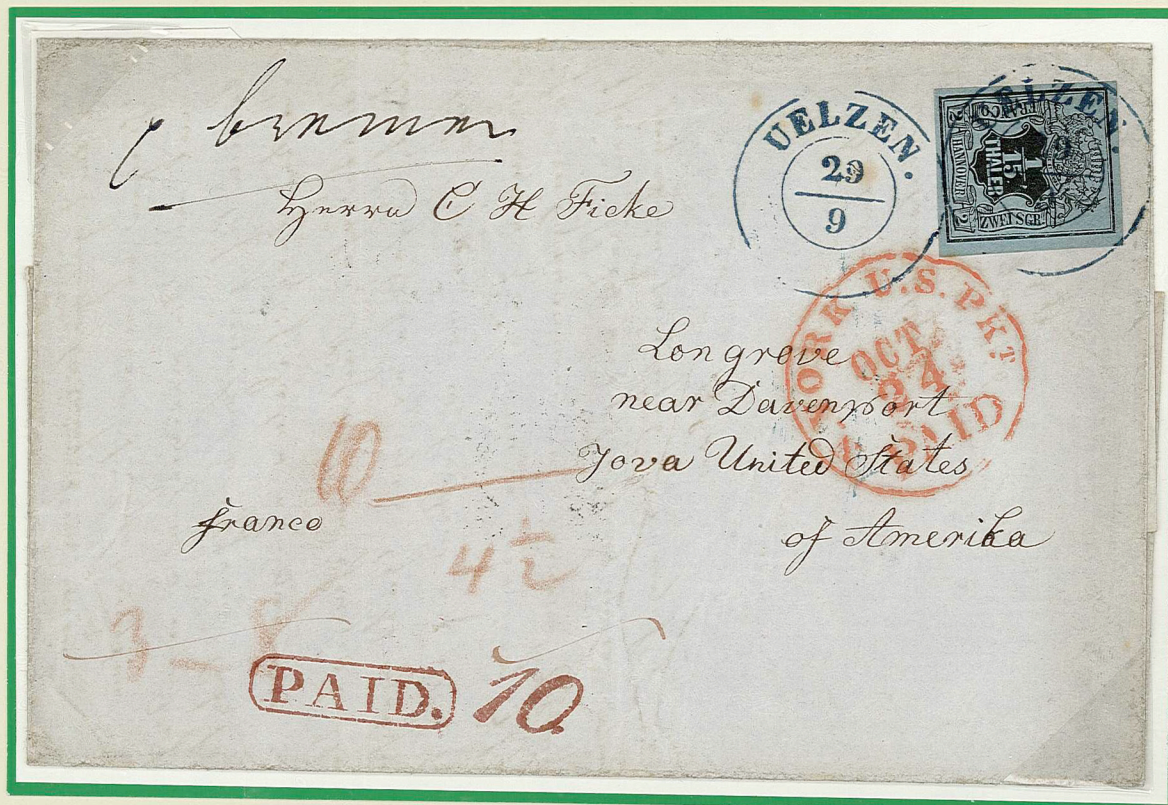 p bremen
Herrn C H Ficke
UELZEN.
29
9
UELZEN.
9
FRANCO
HANNOVER
1
15
THALER
ZWEI SGR.
YORK U.S. PKT
OCT.
24
PAID
Longrove
near Davenport
Jova United States
of Amerika
franco
10
4 1/2
3 — 8
PAID. 10